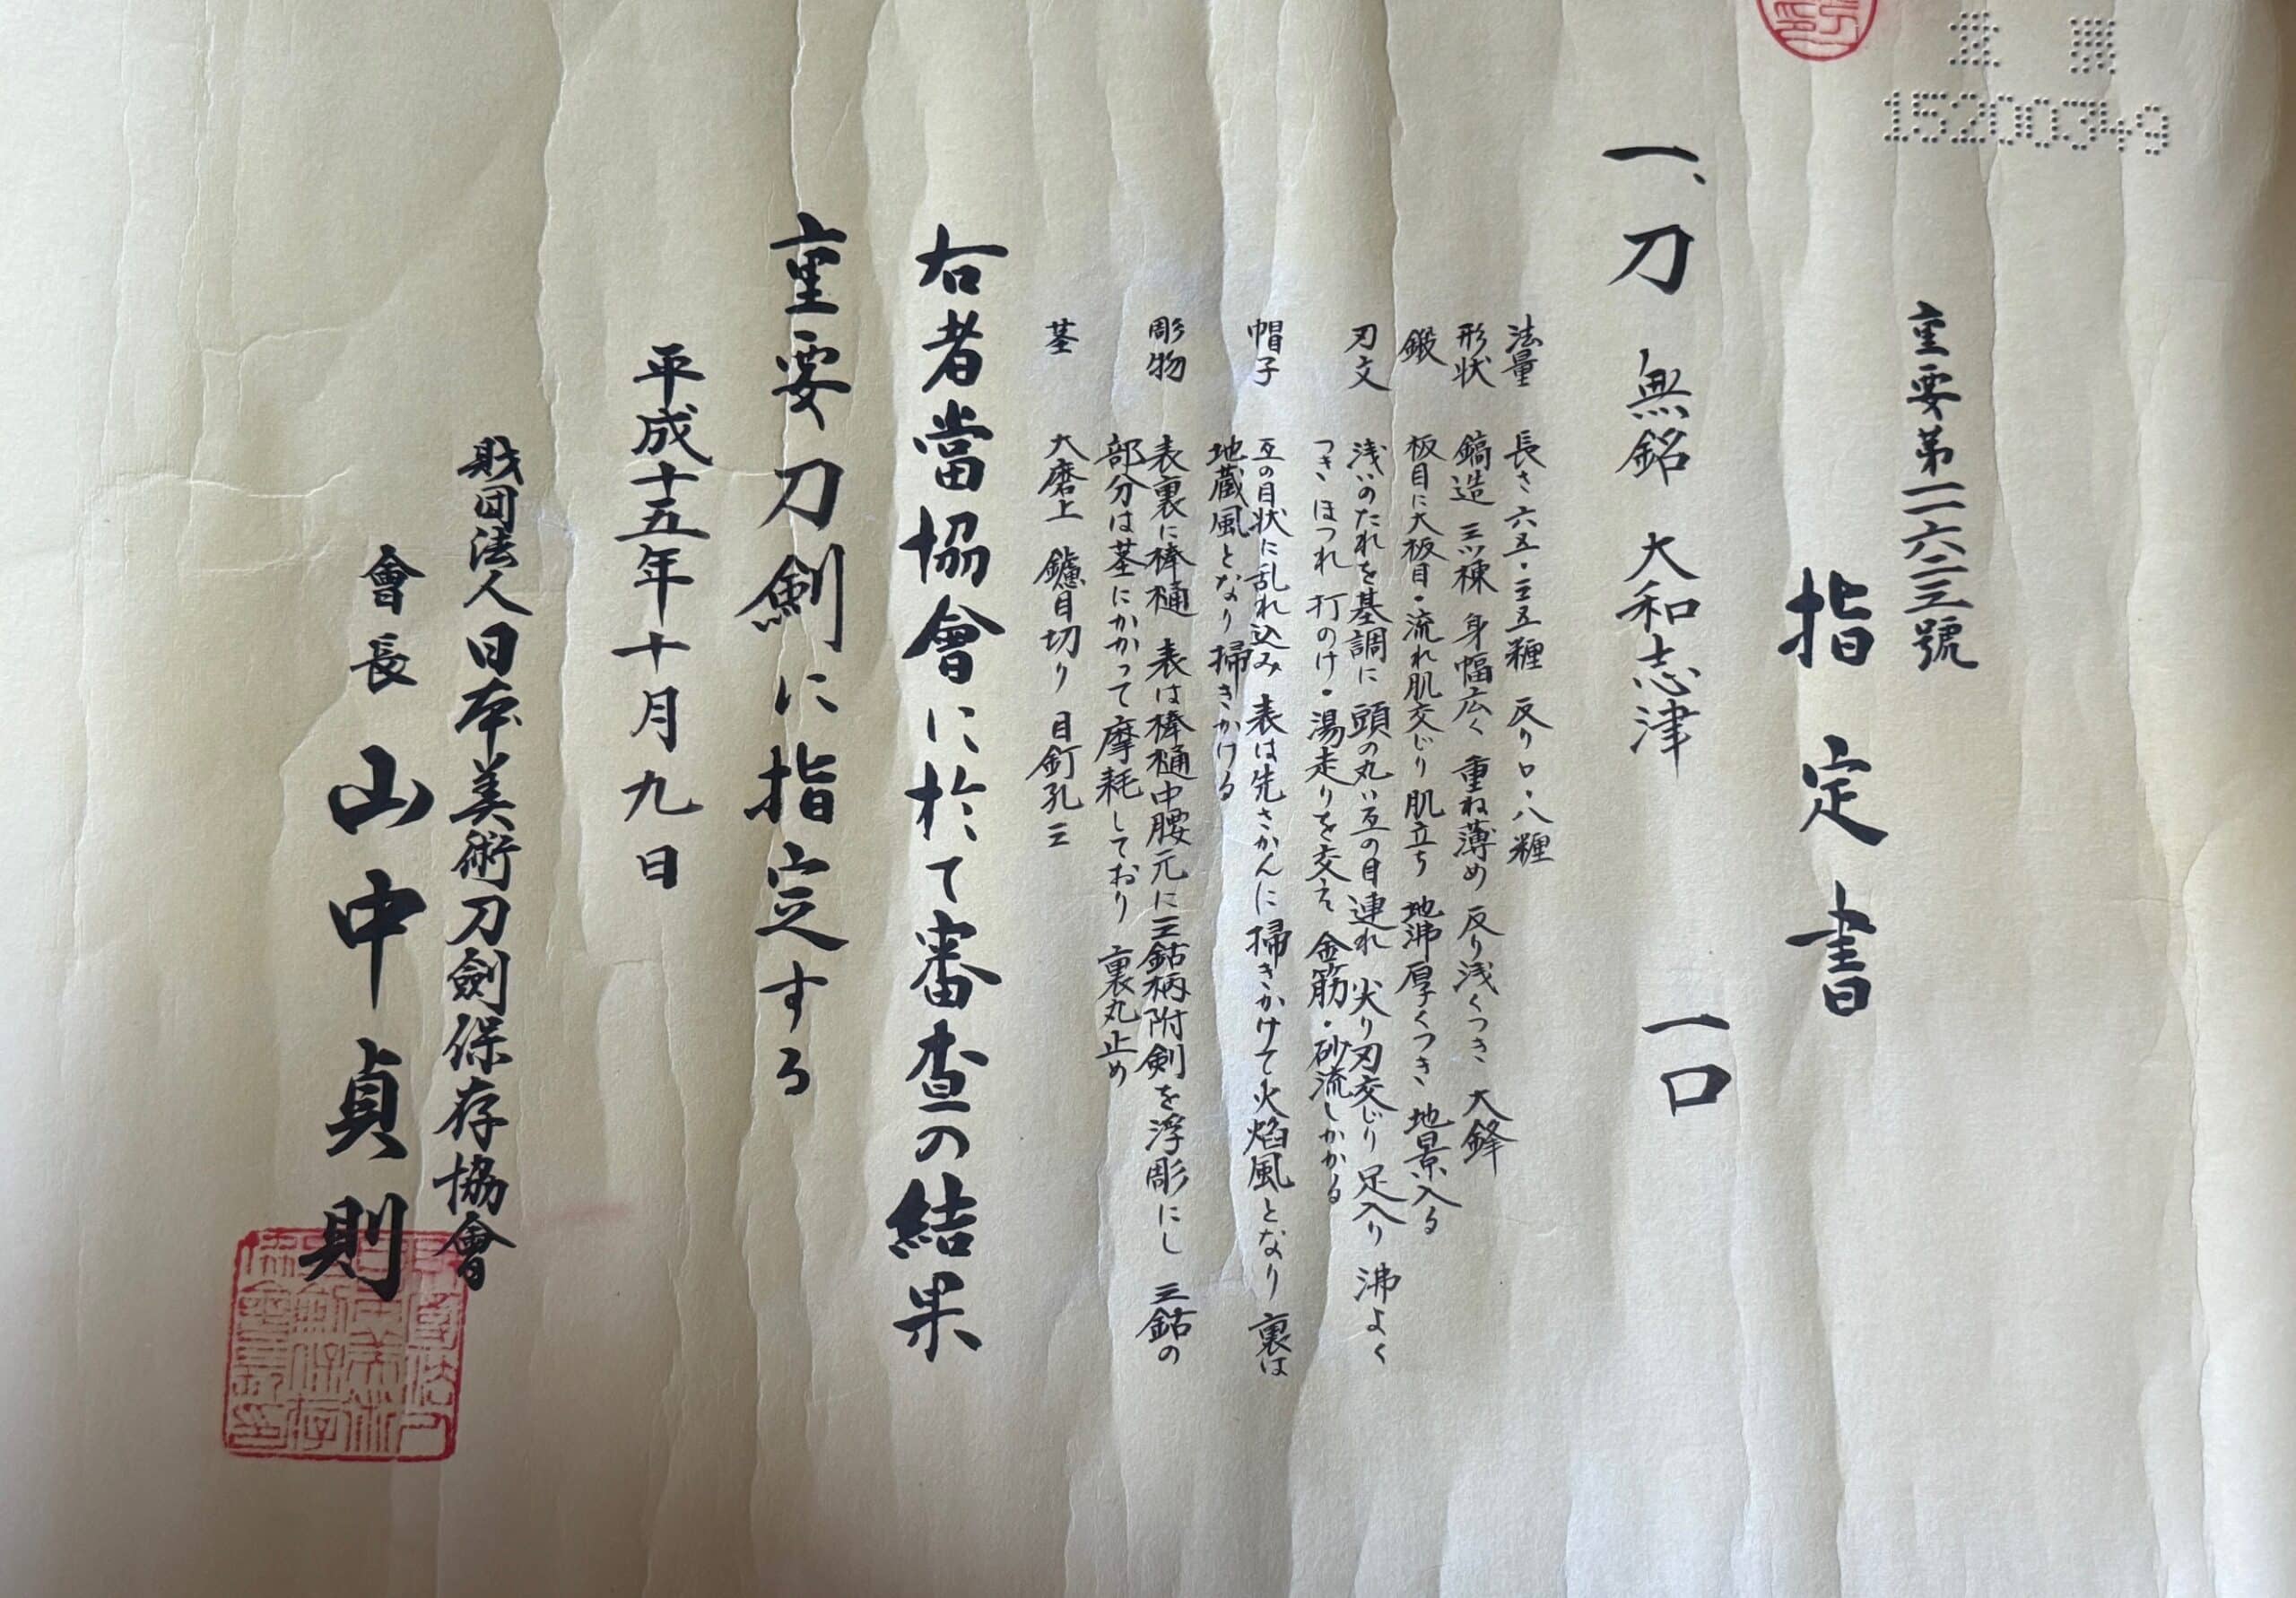 15200349
重要第一一六二三號
指定書
一、刀 無銘 大和志津 一口
法量 長さ六五・三五糎 反り〇・八糎
形状 鎬造 三ツ棟 身幅広く 重ね薄め 反り浅くつき 大鋒
鍛 板目に大板目・流れ肌交じり 肌立ち 地沸厚くつき 地景入る
刃文 浅いのたれを基調に 頭の丸い互の目連れ 尖り刃交じり 足入り 沸よく
つき ほつれ 打のけ・湯走りを交え 金筋・砂流しかかる
帽子 互の目状に乱れ込み 表は先さかんに掃きかけて火焰風となり 裏は
地蔵風となり掃きかける
彫物 表裏に棒樋 表は棒樋中腰元に三鈷柄附剣を浮彫にし 三鈷の
部分は茎にかかって摩耗しており 裏丸止め
茎 大磨上 鑢目切り 目釘孔三
右者當協會に於て審査の結果
重要刀剣に指定する
平成十五年十月九日
財団法人日本美術刀劍保存協會
會長 山中貞則